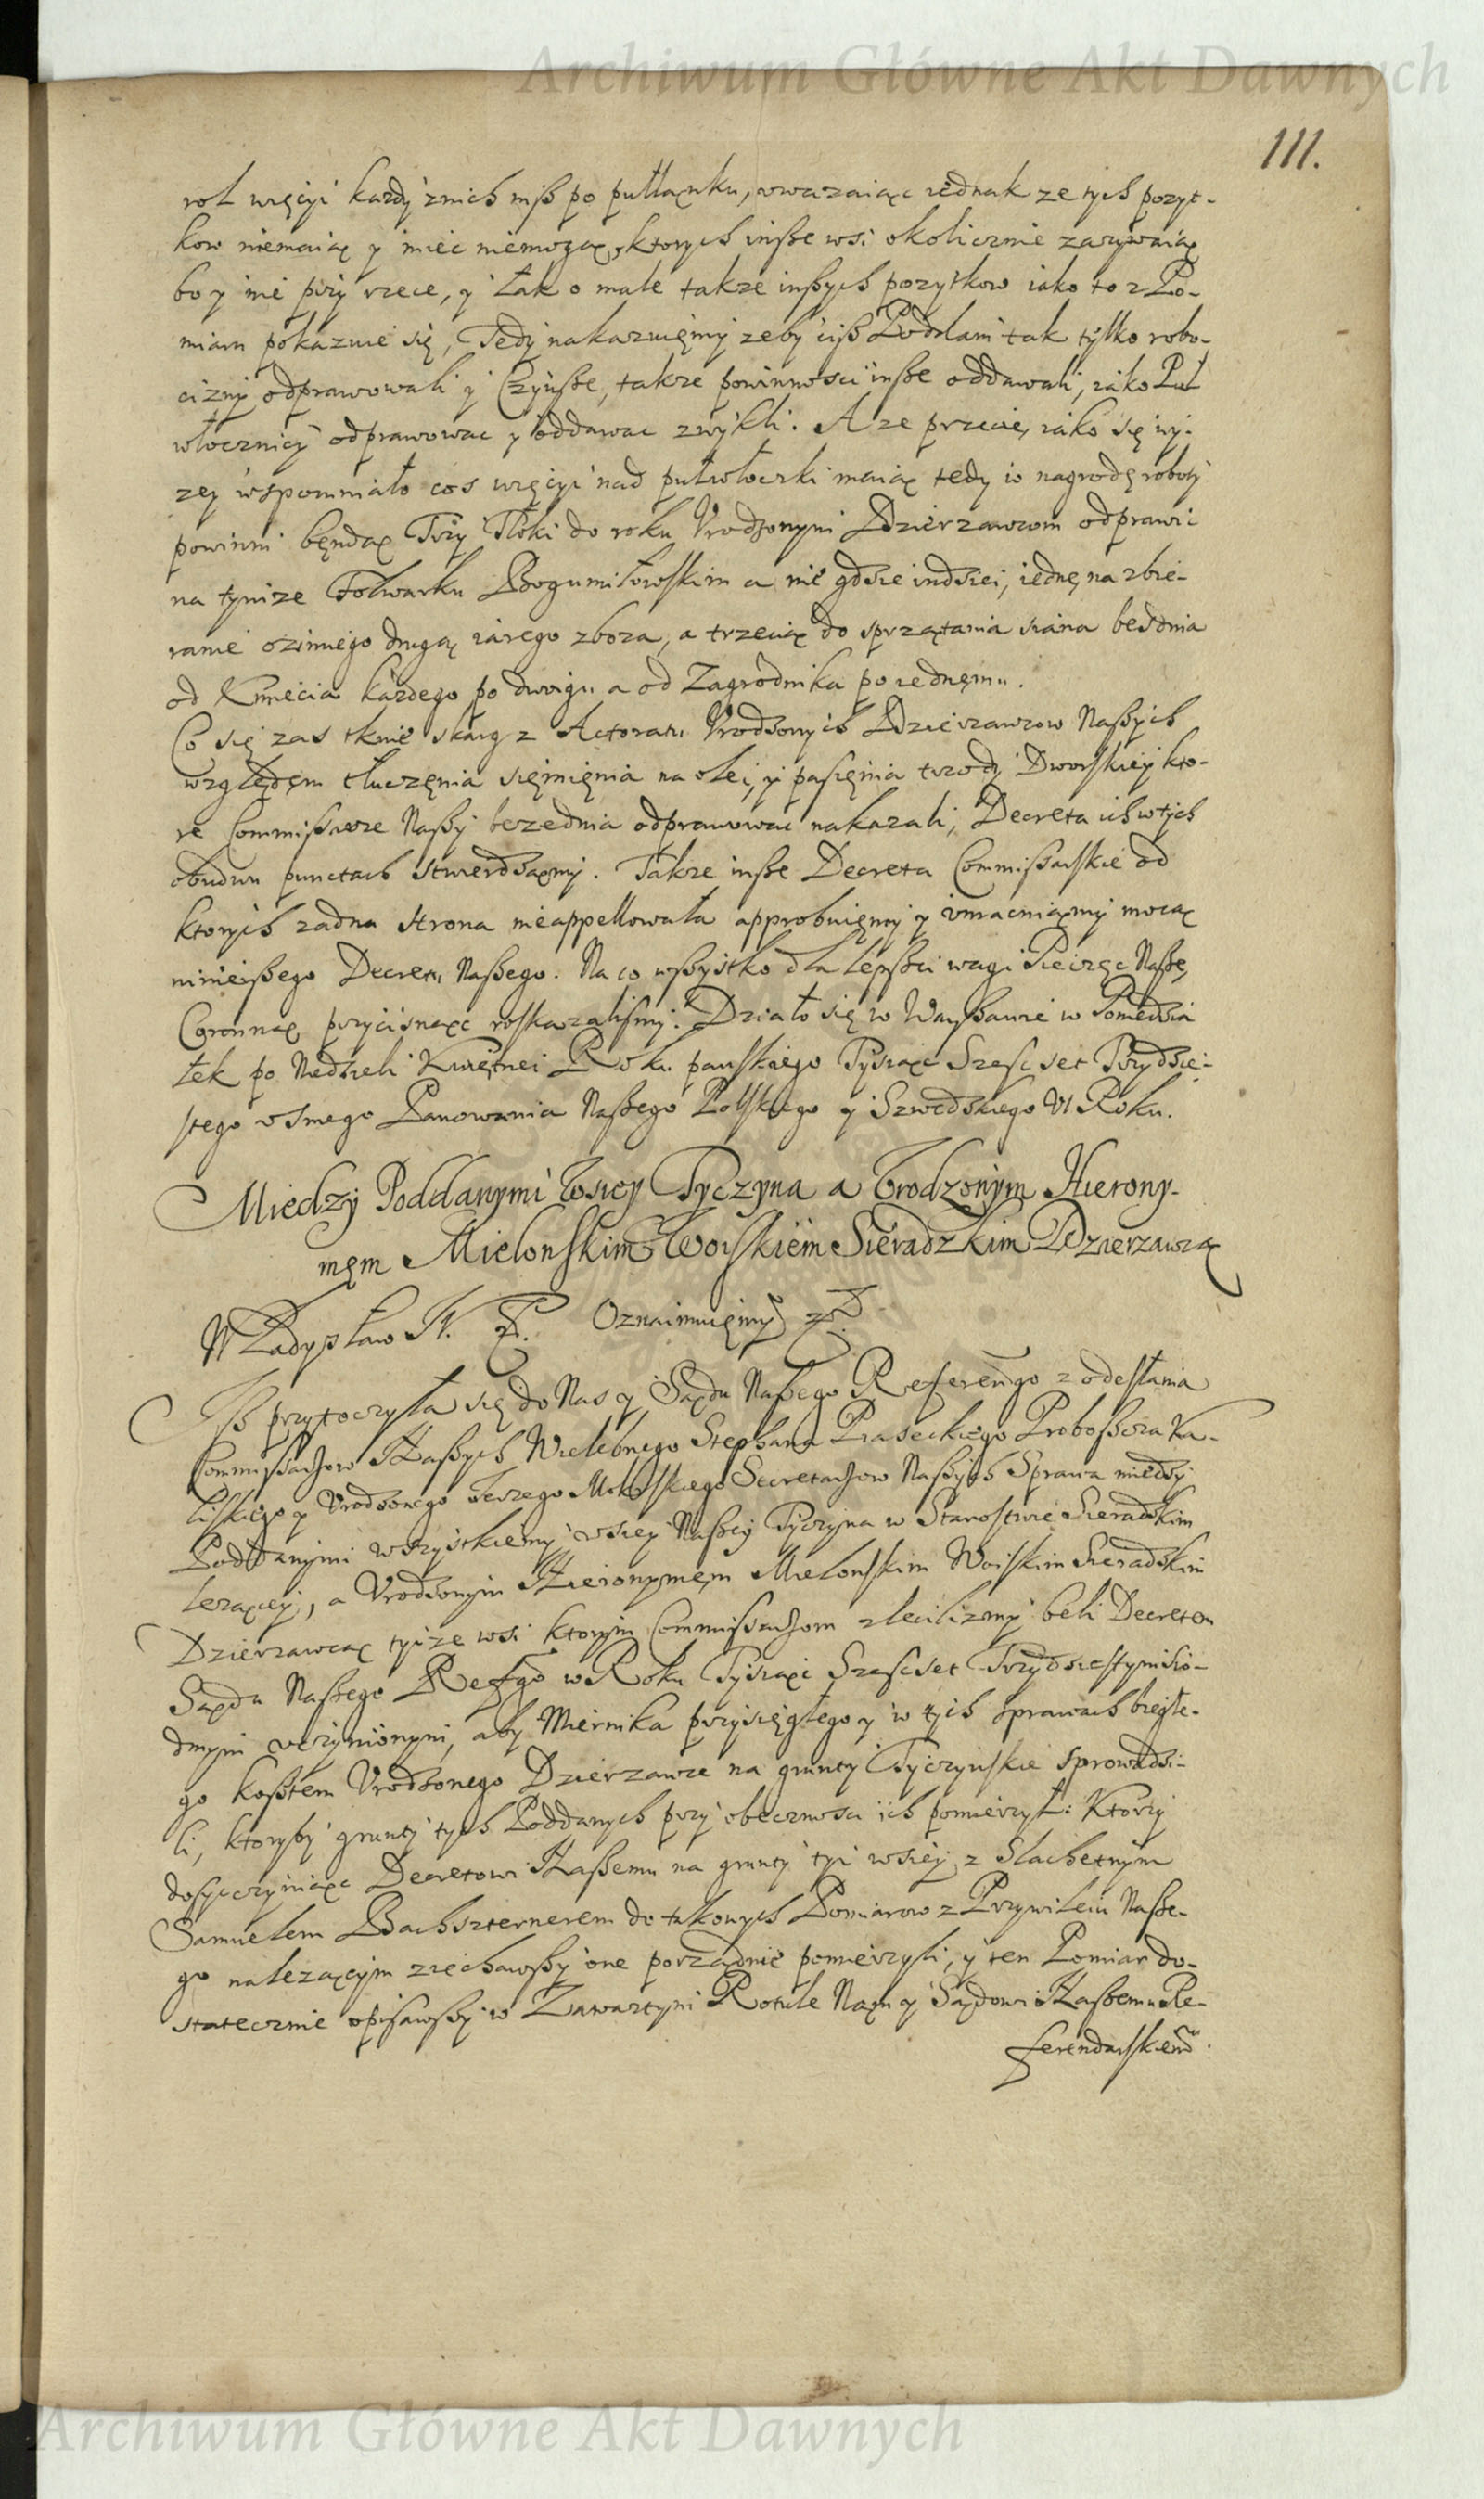 Archiwum Główne Akt Dawnych
111.
rol więcyi kazdy znich niß po pułłanku, uwazaiąc iednak ze tych pozyt-
kow niemaią y miec niemogą, ktorych inße wsi okolicznie zazywaią
bo y nie przy rzece, y łak o male takze inßych pozytkow iako to z Po-
miaru pokazuie się, Tedy nakazuięmy zeby ciß Poddani tak tylko robo-
cizny odprawowali y Czynße, takze powinnosci inße oddawali, iako Puł
włocznicy odprawowac y oddawac zwykli. A ze przecie, iako się wy-
zey wspomniało cos więcyi nad pułwłoczki maią tedy w nagrodę roboty
powinni będą Trzy Tłoki do roku Urodzonym Dzierzawcom odprawic
na tymze Folwarku Bogumiłowskim a nie gdzie indziei, iednę na zbie-
ranie ozimego drugą iarego zboza, a trzecią do sprzątania siana bezdnia
od Kmiecia kazdego po dwoigu a od Zagrodnika po iednęmu.
Co się zas tknie skarg z Actoratu Urodzonych Dzierzawcow Naßych
względęm tłuczęnia sięmięnia na olei, y pasięnia trzody Dworskiey kto-
re Commißarze Naßy bezednia odprawowac nakazali, Decreta ich w tych
obudwu punctach stwierdzamy. Takze inße Decreta Commißarskie od
ktorych zadna strona nieappellowała approbuięmy y vmacniamy mocą
ninieißego Decretu Naßego. Na co wßystko dla lepßei wagi Pieczęc Naßę
Coronną przycisnąc roskazalismy. Działo się w Warßawie w Poniedzia
łek po Niedzieli Kwietnei Roku pańskiego Tysiąc Szescset Trzydzie-
stego osmego Panowania Naßego Polskiego y Szwedzkiego VI Roku.
Miedzy Poddanymi Wsiey Tyczyna a Urodzonym Hierony-
męm Mielonskim Woiskiem Sieradzkim Dzierzawcą
Władysław IV. Oznaimuięmy
Iß przytoczyła się do Nas y Sądu Naßego Referengo z odesłania
Commißarzow Naßych Wielebnego Stephana Piaseckiego Proboßcza Ka-
liskiego y Urodzonego Secretarzow Naßych Sprawa miedzy
Poddanymi wszystkiemi wsiey Naßey Tyczyna w Starostwie Sieradzkim
lezącey, a Urodzonym Hieronymęm Mielonskim Woiskim Sieradzkim
Dzierzawcą tyize wsi ktorym Commißarzom zlecilizmy beli Decretem
Sądu Naßego Refgo w Roku Tysiąc Szescset Trzydziestym sio-
dmym uczynionym, aby Miernika przysięgłego y w tych sprawach biegłe-
go koßtem Urodzonego Dzierzawce na grunty Tyczynskie sprowadzi-
li, ktoryby grunty tych Poddanych przy obecznosci ich pomierzył: Ktorzy
dosycczyniąc Decretowi Naßemu na grunty tyi wsiey z Slachetnym
Samuelem Bachszternerem do takowych Pomiarow z Przywileiu Naße-
go nalezącym ziechawßy one porządnie pomierzyli, y ten Pomiar do-
statecznie opisawßy w Zawartym Rotule Nam y Sądowi Naßemu Re-
ferendarskiemu
Archiwum Główne Akt Dawnych